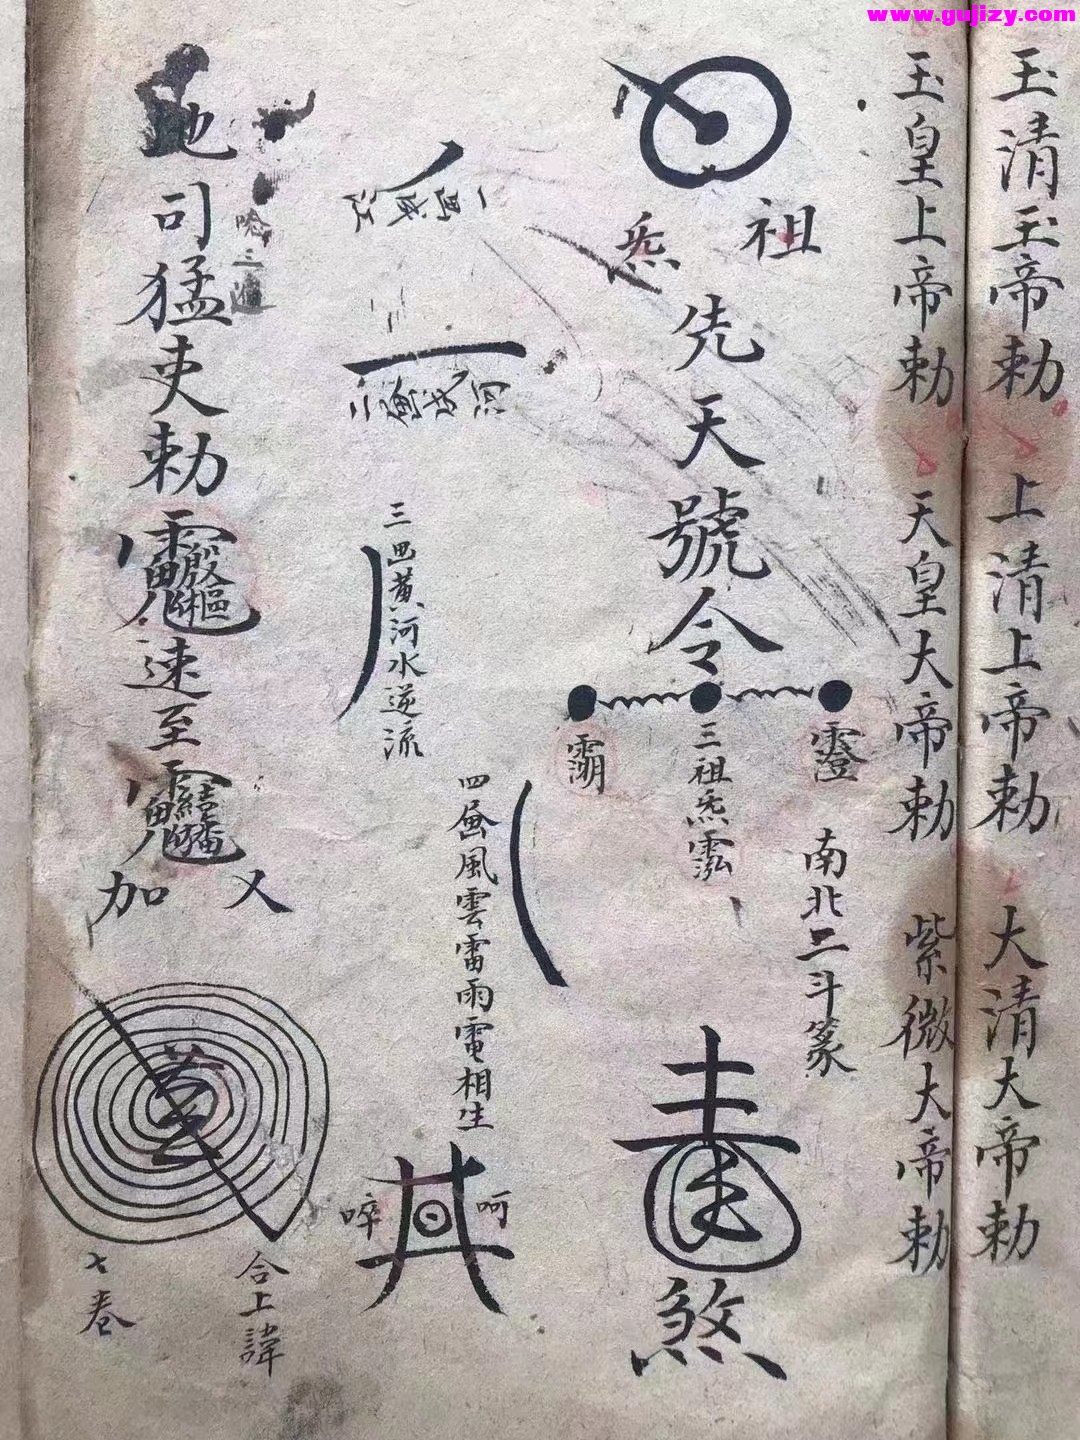 www.gujizy.com
玉清玉帝勅
上清上帝勅
大清大帝勅
玉皇上帝勅
天皇大帝勅
紫微大帝勅
祖
炁
先天號令
三祖炁
南北二斗篆
煞
一画成江
二画成河
三画黄河水逆流
四画風雲雷雨電相生
呵
啐
地司猛吏勅
速至
又
加
合上諱
七卷